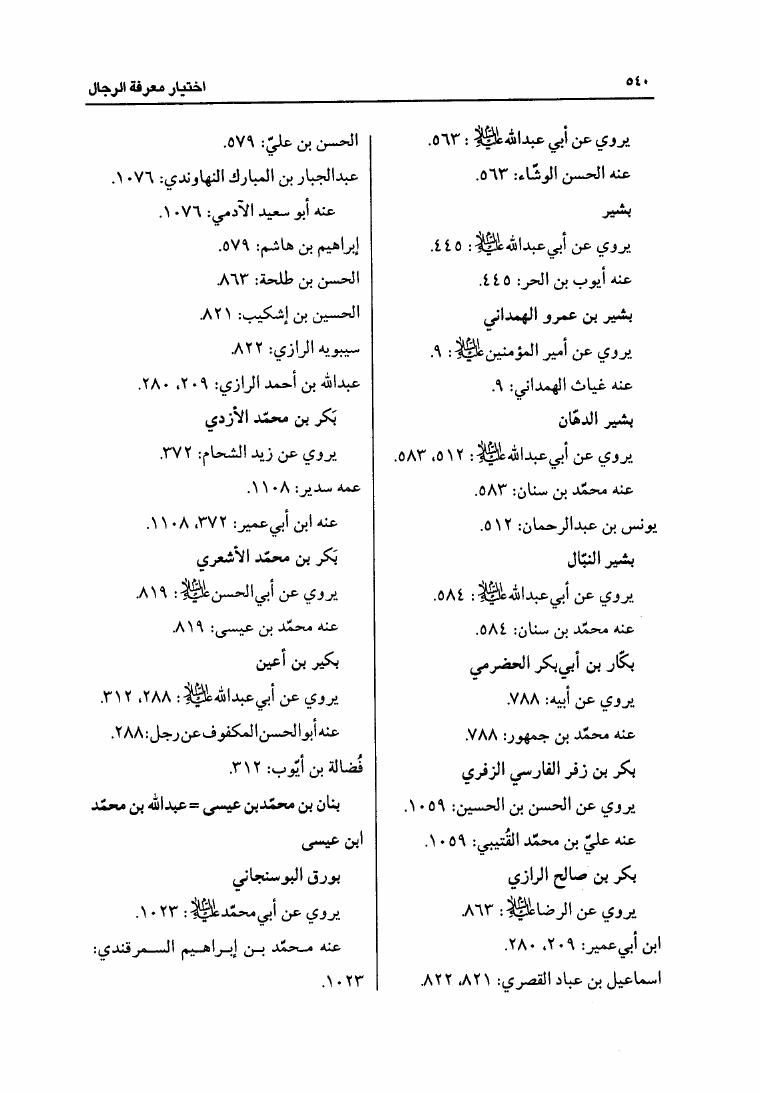 ٥٤٠
اختيار معرفة الرجال
يروي عن أبي عبدالله عليه السلام: ٥٦٣.
عنه الحسن الوشّاء: ٥٦٣.
بشير
يروي عن أبي عبدالله عليه السلام: ٤٤٥.
عنه أيوب بن الحر: ٤٤٥.
بشير بن عمرو الهمداني
يروي عن أمير المؤمنين عليه السلام: ٩.
عنه غياث الهمداني: ٩.
بشير الدهّان
يروي عن أبي عبدالله عليه السلام: ٥١٢، ٥٨٣.
عنه محمّد بن سنان: ٥٨٣.
يونس بن عبدالرحمان: ٥١٢.
بشير النبّال
يروي عن أبي عبدالله عليه السلام: ٥٨٤.
عنه محمّد بن سنان: ٥٨٤.
بكّار بن أبي‌بكر الحضرمي
يروي عن أبيه: ٧٨٨.
عنه محمّد بن جمهور: ٧٨٨.
بكر بن زفر الفارسي الزفري
يروي عن الحسن بن الحسين: ١٠٥٩.
عنه عليّ بن محمّد القُتيبي: ١٠٥٩.
بكر بن صالح الرازي
يروي عن الرضا عليه السلام: ٨٦٣.
ابن أبي عمير: ٢٠٩، ٢٨٠.
اسماعيل بن عباد القصري: ٨٢١، ٨٢٢.
الحسن بن عليّ: ٥٧٩.
عبدالجبار بن المبارك النهاوندي: ١٠٧٦.
عنه أبو سعيد الآدمي: ١٠٧٦.
إبراهيم بن هاشم: ٥٧٩.
الحسن بن طلحة: ٨٦٣.
الحسين بن إشكيب: ٨٢١.
سيبويه الرازي: ٨٢٢.
عبدالله بن أحمد الرازي: ٢٠٩، ٢٨٠.
بَكر بن محمّد الأزدي
يروي عن زيد الشحام: ٣٧٢.
عمه سدير: ١١٠٨.
عنه ابن أبي عمير: ٣٧٢، ١١٠٨.
بَكر بن محمّد الأشعري
يروي عن أبي الحسن عليه السلام: ٨١٩.
عنه محمّد بن عيسى: ٨١٩.
بكير بن أعين
يروي عن أبي عبدالله عليه السلام: ٢٨٨، ٣١٢.
عنه أبو الحسن المكفوف عن رجل: ٢٨٨.
فُضالة بن أيّوب: ٣١٢.
بنان بن محمّد بن عيسى = عبدالله بن محمّد
ابن عيسى
بورق البوسنجاني
يروي عن أبي محمّد عليه السلام: ١٠٢٣.
عنه محمّد بن إبراهيم السمرقندي:
١٠٢٣.